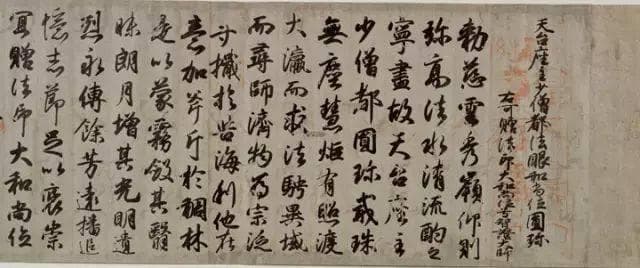 天台座主少僧都法眼和尚位圓珍
右可贈法印大和尚位号智證大師
勅慈雲秀嶺仰則
弥高法水清流酌之
寧盡故天台座主
少僧都圓珍戒珠
無塵慧炬有照渡
大瀛而求法騁異域
而尋師濟物為宗泛
舟檝於苦海利他在
意加斧斤於稠林
是以蒙霧斂其翳
昧朗月增其光明遺
烈永傳餘芳遠播追
憶志節足以褒崇
冝贈法印大和尚位